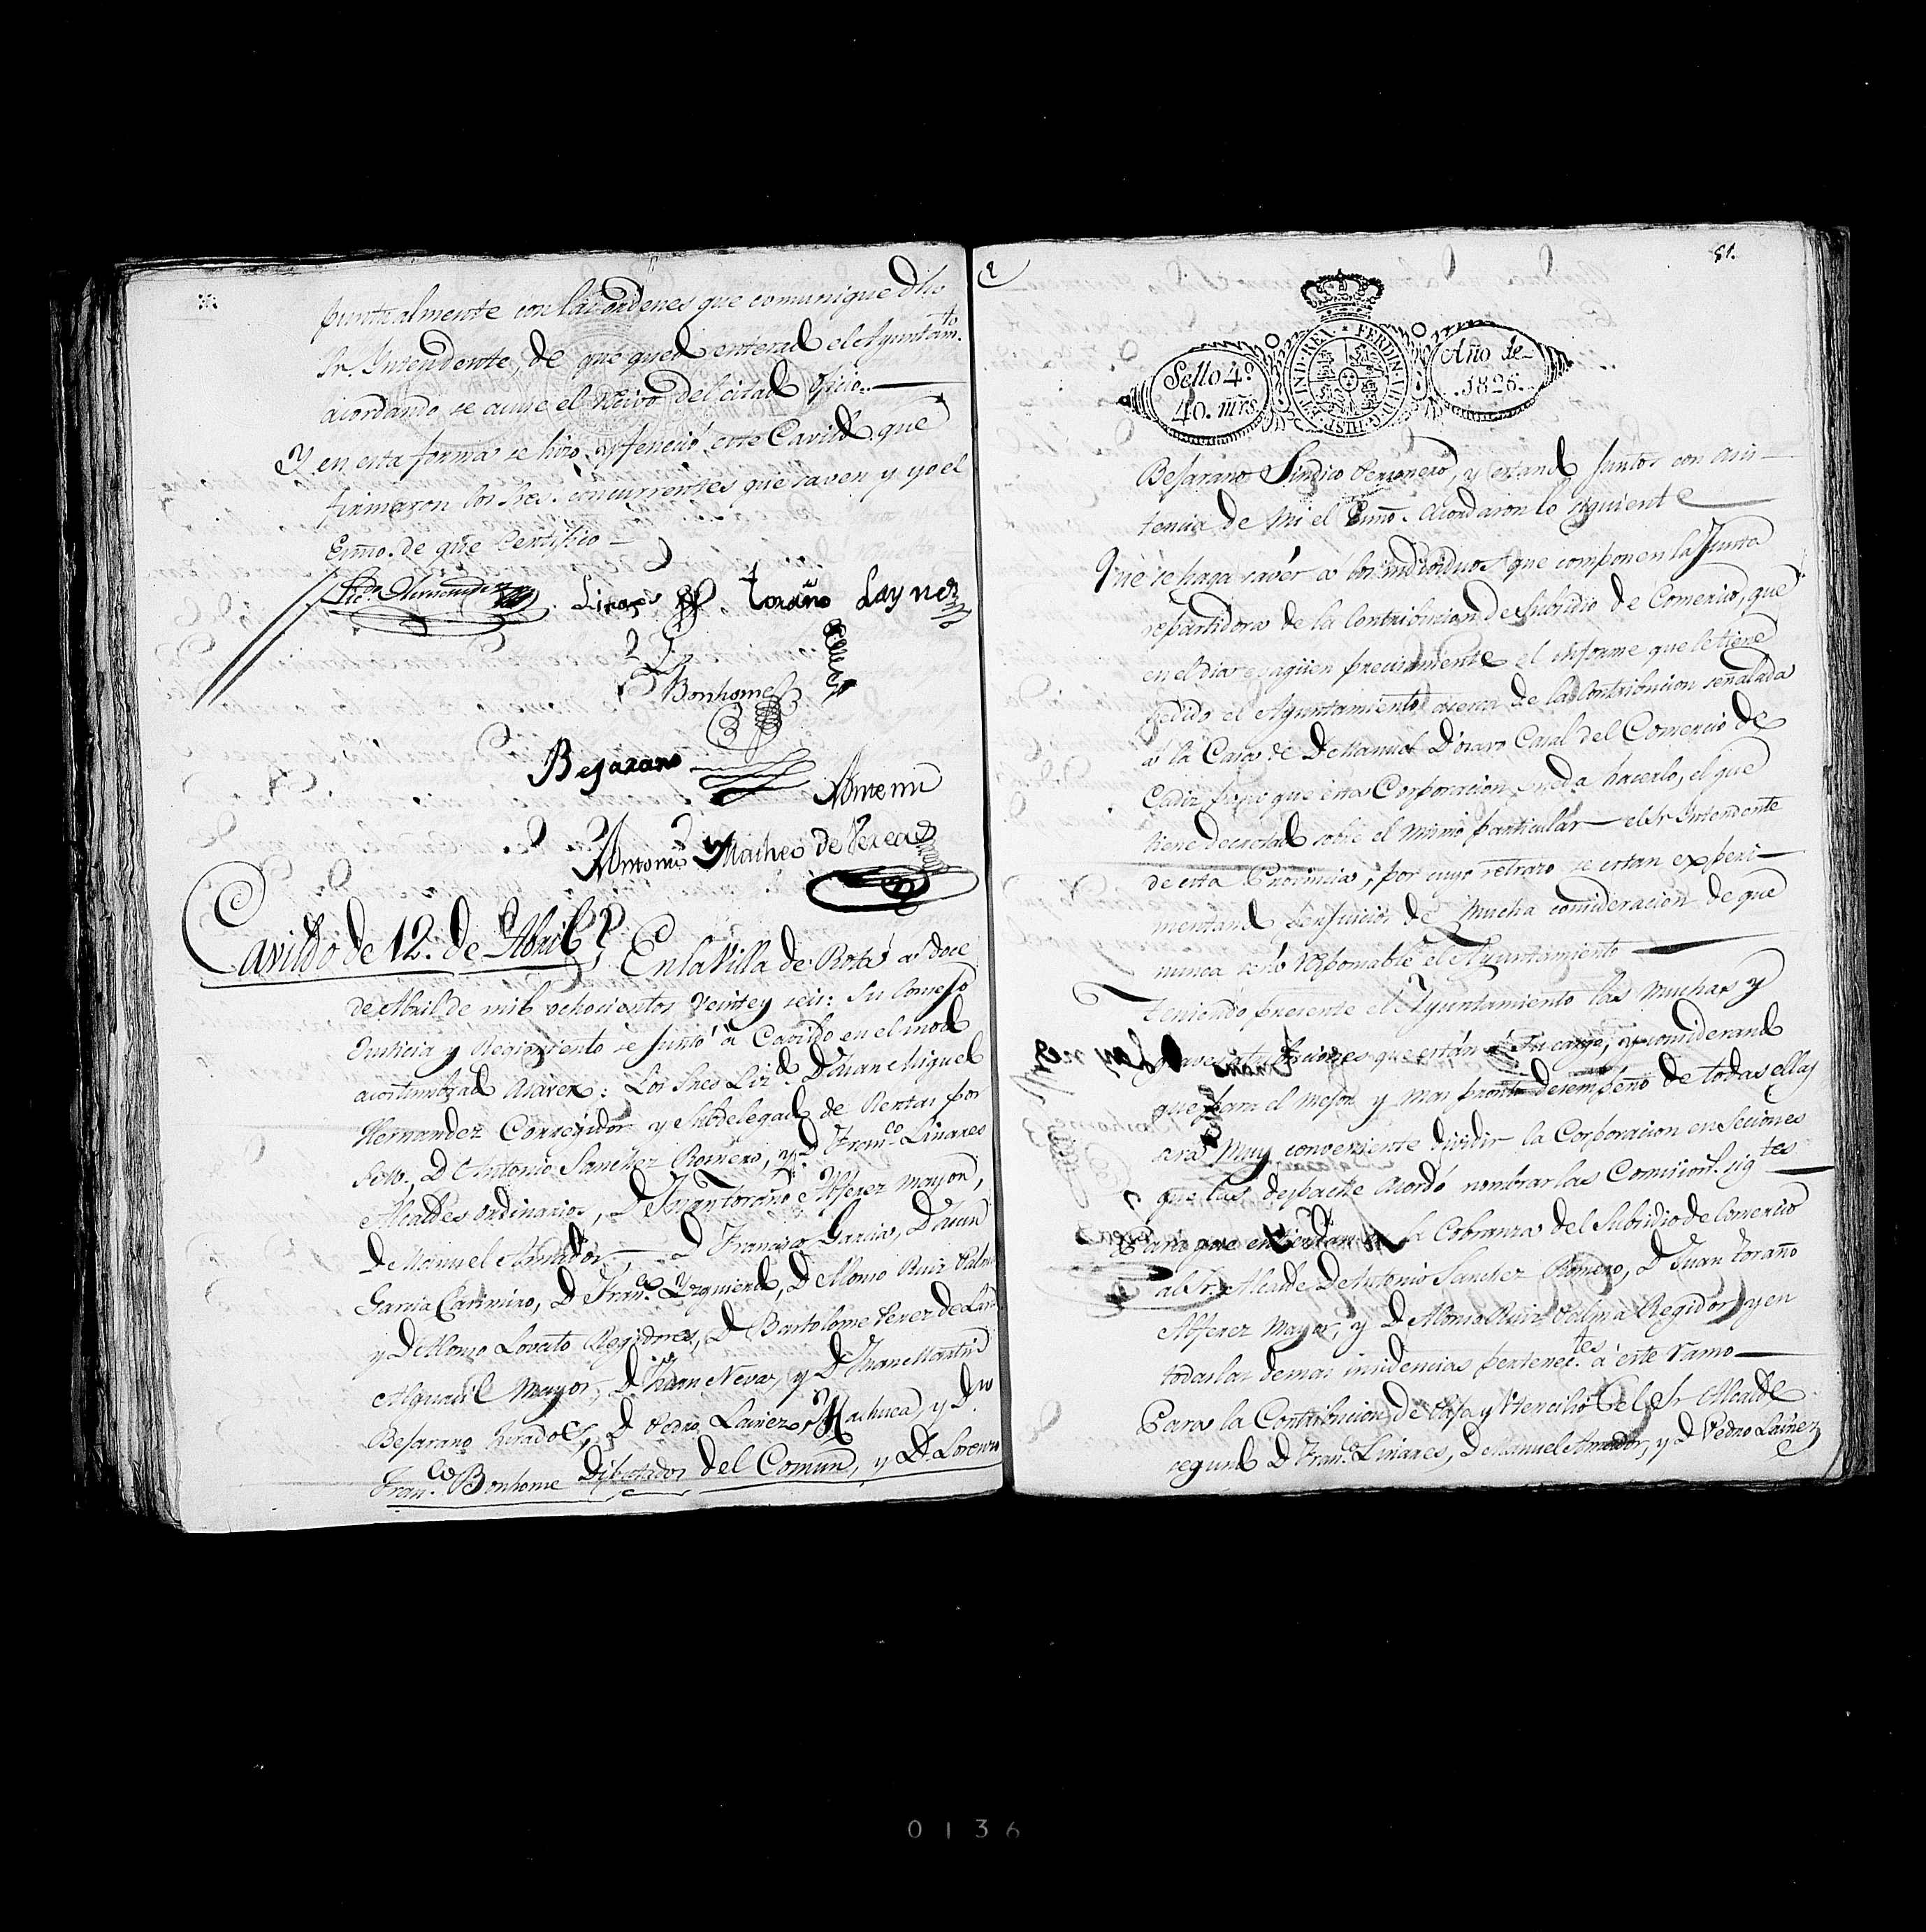 puntualmente con las ordenes que comunique dho
Sr. Intendente, de que quedó enterado el Ayuntam.to
acordando se avise el recivo del citado oficio.
Y en esta forma se hizo y feneció este Cavildo que
firmaron los Sres. concurrentes que saven y yo el
Essno. de que Certifico
Licdo. Hernandez Linares toraño Laynez
Bonhome
Bejarano
Ante mi
Antonio Matheo de Perea
Cavildo de 12. de Abril
En la Villa de Rota á doce
de Abril de mil ochocientos veinte y seis: Su Consejo
Justicia y Regimiento se juntó á Cavildo en el modo
acostumbrado asaver: Los Sres Lizdo. D Juan Miguel
Hernandez Corregidor y Subdelegado de Rentas por
S.M., D Antonio Sanchez Romero, y D Franco. Linares
Alcaldes ordinarios, D Juan toraño Alferez mayor,
D Manuel Amador, D Francisco Garcia, D Juan
Garcia Casimiro, D Franco. Yzquierdo, D Alonso Ruiz Palma
y D Alonso Lovato Regidores, D Bartolome Perez de
Alguacil Mayor, D Juan Neva, y D Juan Martin
Bejarano Jurados, D Pedro Lainez, Machuca, y Dn
Franco. Bonhome Diputados del Comun, y D. Lorenzo
81.
Sello 4º
40. mrs
FERDIN. VII. D. G. HISP. ET IND. REX
Año de
1826.
Bejarano Sindico Personero, y estando juntos con asis-
tencia de mi el Essno. Acordaron lo siguiente
Que se haga savér á los individuos que componen la Junta
repartidora de la Contribucion de Subsidio de Comercio, que
en el dia evaquen precisamente el informe que le tiene
pedido el Ayuntamiento acerca de la Contribucion señalada
á la Casa de D Manuel D'ovaro Casal del Comercio de
Cadiz, para que esta Corporacion pueda hacerlo, el que
tiene decretado sobre el mismo particular el Sr Intendente
de esta Provincia, por cuyo retraso se estan experi-
mentando perjuicios de mucha consideracion de que
nunca será responsable el Ayuntamiento
Teniendo presente el Ayuntamiento las muchas y
graves atribuciones que están á su cargo, y considerando
que para el mejor y mas pronto desempeño de todas ellas
será muy conveniente dividir la Corporacion en Seciones
que las despache acordó nombrar las Comision.s sig.tes
Para que entiendan en la Cobranza del Subsidio de Comercio
al Sr. Alcalde D Antonio Sanchez Romero, D Juan toraño
Alferez Mayor, y D Alonso Ruiz Palma Regidor y en
todas las demas insidencias pertenec.tes á este ramo
Para la Contribucion de Paja y Utencilio el Sr Alcalde
segundo D Franco. Linares, D Manuel Amador, y D Pedro Lainez
0136